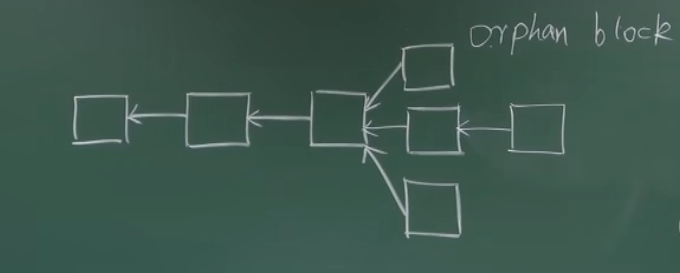 orphan block